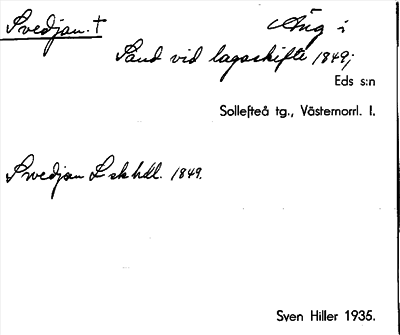 Svedjan. † Äng i
Sånd vid lagaskifte 1849;
Eds s:n
Sollefteå tg., Västernorrl. l.
Svedjan L sk hdl. 1849.
Sven Hiller 1935.